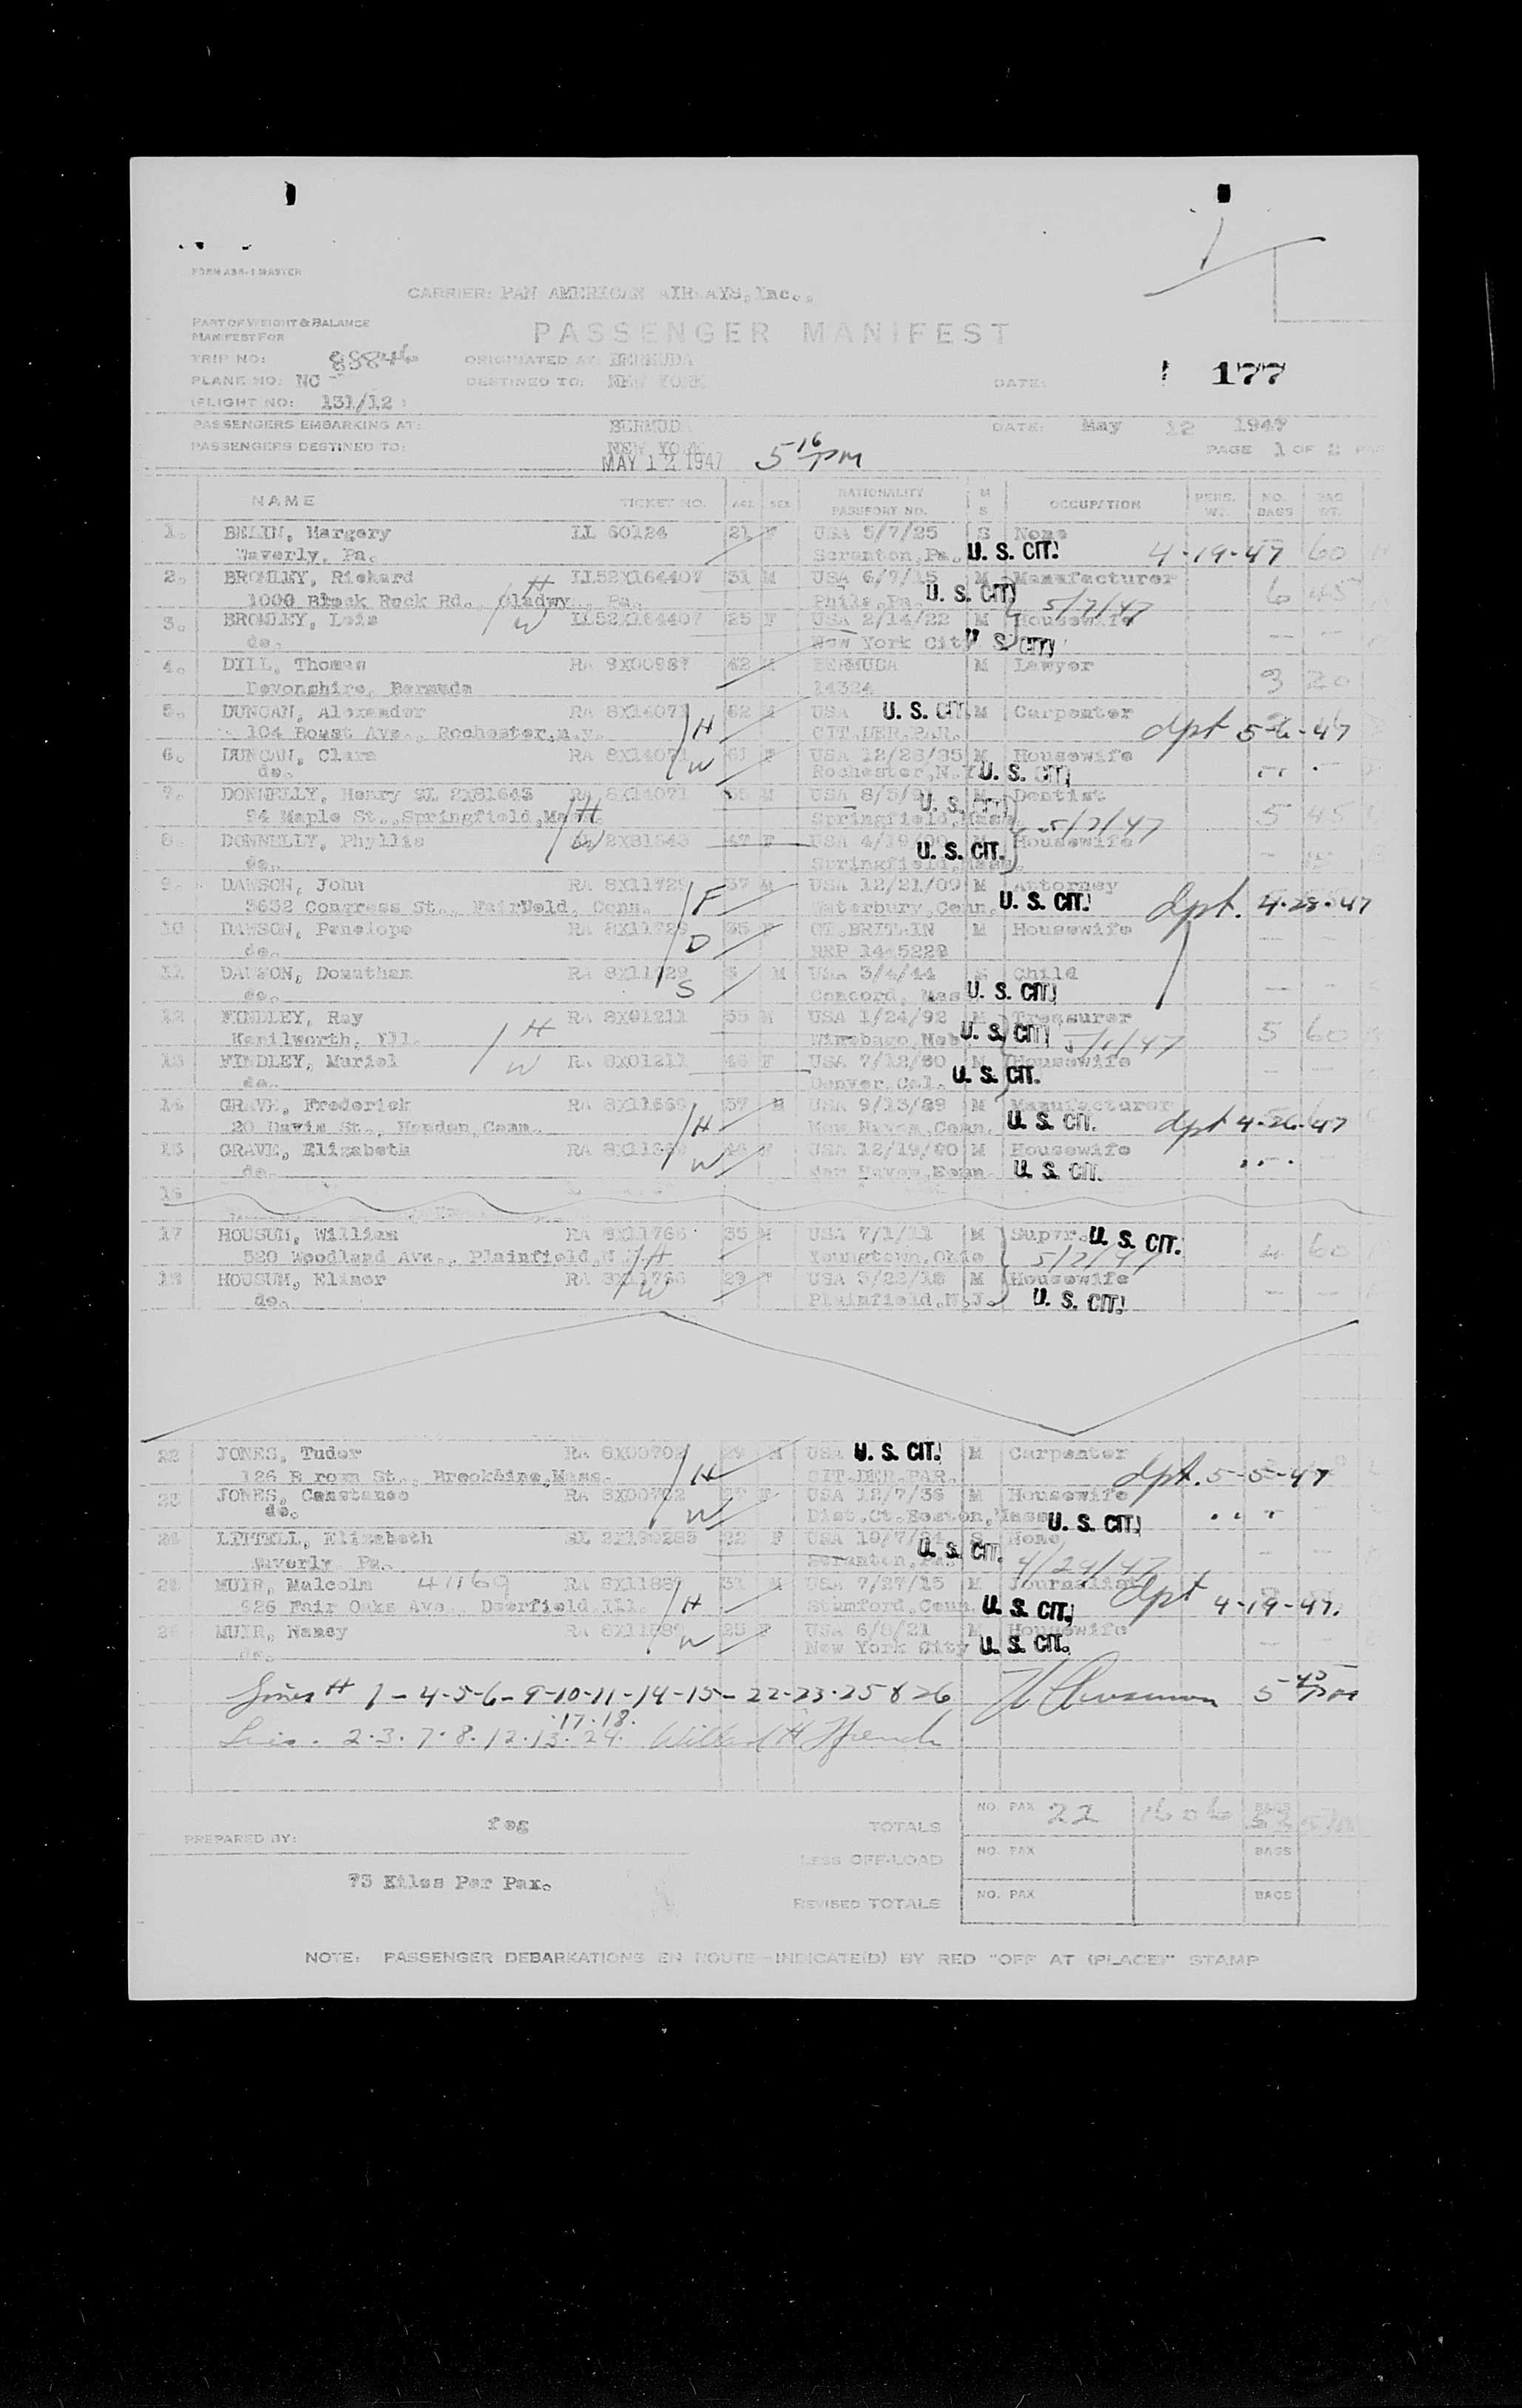 FORM ABA-1 MASTER
CARRIER: PAN AMERICAN AIRWAYS, Inc.,
PART OF WEIGHT & BALANCE
MANIFEST FOR
PASSENGER MANIFEST
TRIP NO: 88846 ORIGINATED AT: BERMUDA
PLANE NO: NC DESTINED TO: NEW YORK DATE: 177
(FLIGHT NO: 131/12)
PASSENGERS EMBARKING AT: BERMUDA DATE: May 12 1947
PASSENGERS DESTINED TO: NEW YORK PAGE 1 OF 2
MAY 12 1947 5 16 PM
NAME TICKET NO. AGE SEX NATIONALITY PASSPORT NO. M S OCCUPATION PERS. WT. NO. BAGS BAG WT.
1. BELIN, Margery LL 60124 21 F USA 5/7/25 S None
Waverly, Pa. Scranton, Pa. U. S. CIT. 4-19-47 60
2. BROMLEY, Richard LL52X164407 31 M USA 6/7/15 M Manufacturer
1000 Black Rock Rd., Gladwy., Pa. H Phila, Pa. U. S. CIT. 5/7/47 6 45
3. BROMLEY, Lois W LL52X164407 25 F USA 2/14/22 M Housewife
do. New York City U. S. CIT. — —
4. DILL, Thomas RA 9X00987 42 M BERMUDA M Lawyer
Devonshire, Bermuda 14324 3 20
5. DUNCAN, Alexander RA 8X14071 62 M USA U. S. CIT. M Carpenter
104 Boust Ave., Rochester, N.Y. H CIT.DER.PAR. dpt 5-6-47
6. DUNCAN, Clara RA 8X14071 61 F USA 12/28/85 M Housewife
do. W Rochester, N.Y. U. S. CIT.
7. DONNELLY, Henry SL 2X81643 RA 8X14071 M USA 8/5/ M Dentist
94 Maple St., Springfield, Mass. H Springfield, Mass. U. S. CIT. 5/7/47 5 45
8. DONNELLY, Phyllis W 2X81643 47 F USA 4/19/00 M Housewife
do. Springfield, Mass. U. S. CIT.
9. DAWSON, John RA 8X11729 37 M USA 12/21/09 M Attorney
3632 Congress St., Fairfield, Conn. F Waterbury, Conn. U. S. CIT. dpt. 4-28-47
10 DAWSON, Penelope RA 8X11729 35 F GT.BRITAIN M Housewife
do. D REP 14-5229 — —
11 DAWSON, Donathan RA 8X11729 3 M USA 3/4/44 S Child
do. S Concord, Mass U. S. CIT. — —
12 FINDLEY, Ray RA 8X01211 55 M USA 1/24/92 M Treasurer
Kenilworth, Ill. H Winebago, Neb. U. S. CIT. 5/1/47 5 60
13 FINDLEY, Muriel W RA 8X01211 46 F USA 7/12/00 M Housewife
do. Denver, Col. U. S. CIT. — —
14 GRAVE, Frederick RA 8X11669 57 M USA 9/13/89 M Manufacturer
20 Davis St., Hamden, Conn. H New Haven, Conn. U. S. CIT. dpt 4-26-47
15 GRAVE, Elizabeth RA 8X11669 46 F USA 12/19/00 M Housewife
do. W New Haven, Conn. U. S. CIT.
16
17 HOUSUM, William RA 8X11766 35 M USA 7/1/11 M Supvr. U. S. CIT.
520 Woodland Ave., Plainfield, N. H Youngtown, Ohio 5/7/47 4 60
18 HOUSUM, Elinor RA 8X11766 29 F USA 3/22/18 M Housewife
do. W Plainfield, N.J. U. S. CIT. — —
22 JONES, Tudor RA 8X00702 29 M USA U. S. CIT. M Carpenter
126 Brown St., Brookline, Mass. H CIT.DER.PAR. dpt. 5-5-47
23 JONES, Constance RA 8X00702 27 F USA 12/7/36 M Housewife
do. W Dist.Ct.Boston, Mass U. S. CIT.
24 LITTELL, Elizabeth SL 2X190285 22 F USA 10/7/24 S None
Waverly Pa. Scranton, Pa. U. S. CIT. 4/24/47 — —
25 MUIR, Malcolm 41169 RA 8X11889 31 M USA 7/27/15 M Journalist
926 Fair Oaks Ave., Deerfield, Ill. H Stamford, Conn. U. S. CIT. dpt 4-19-47.
26 MUIR, Nancy RA 8X11889 25 F USA 6/8/21 M Housewife
do. W New York City U. S. CIT. — —
1-4-5-6-9-10-11-14-15-22-23-25 & 26 5 45 PM
17.18.
2.3.7.8.12.13.24. Willard H French
PREPARED BY: fog TOTALS NO. PAX 22 1606 BAGS
LESS OFF-LOAD NO. PAX BAGS
73 Kilos Per Pax.
REVISED TOTALS NO. PAX BAGS
NOTE: PASSENGER DEBARKATIONS EN ROUTE—INDICATE(D) BY RED "OFF AT (PLACE)" STAMP